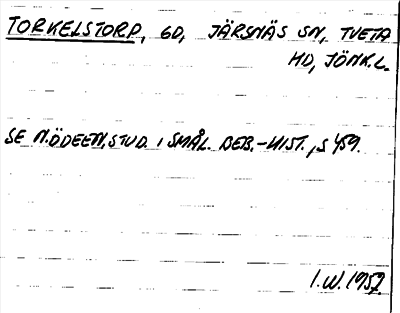 TORKELSTORP, GD, JÄRSNÄS SN, TVETA
HD, JÖNK.L.
SE N.ÖDEEN, STUD. I SMÅL. BEB.-HIST., S 459.
I.W. 1957